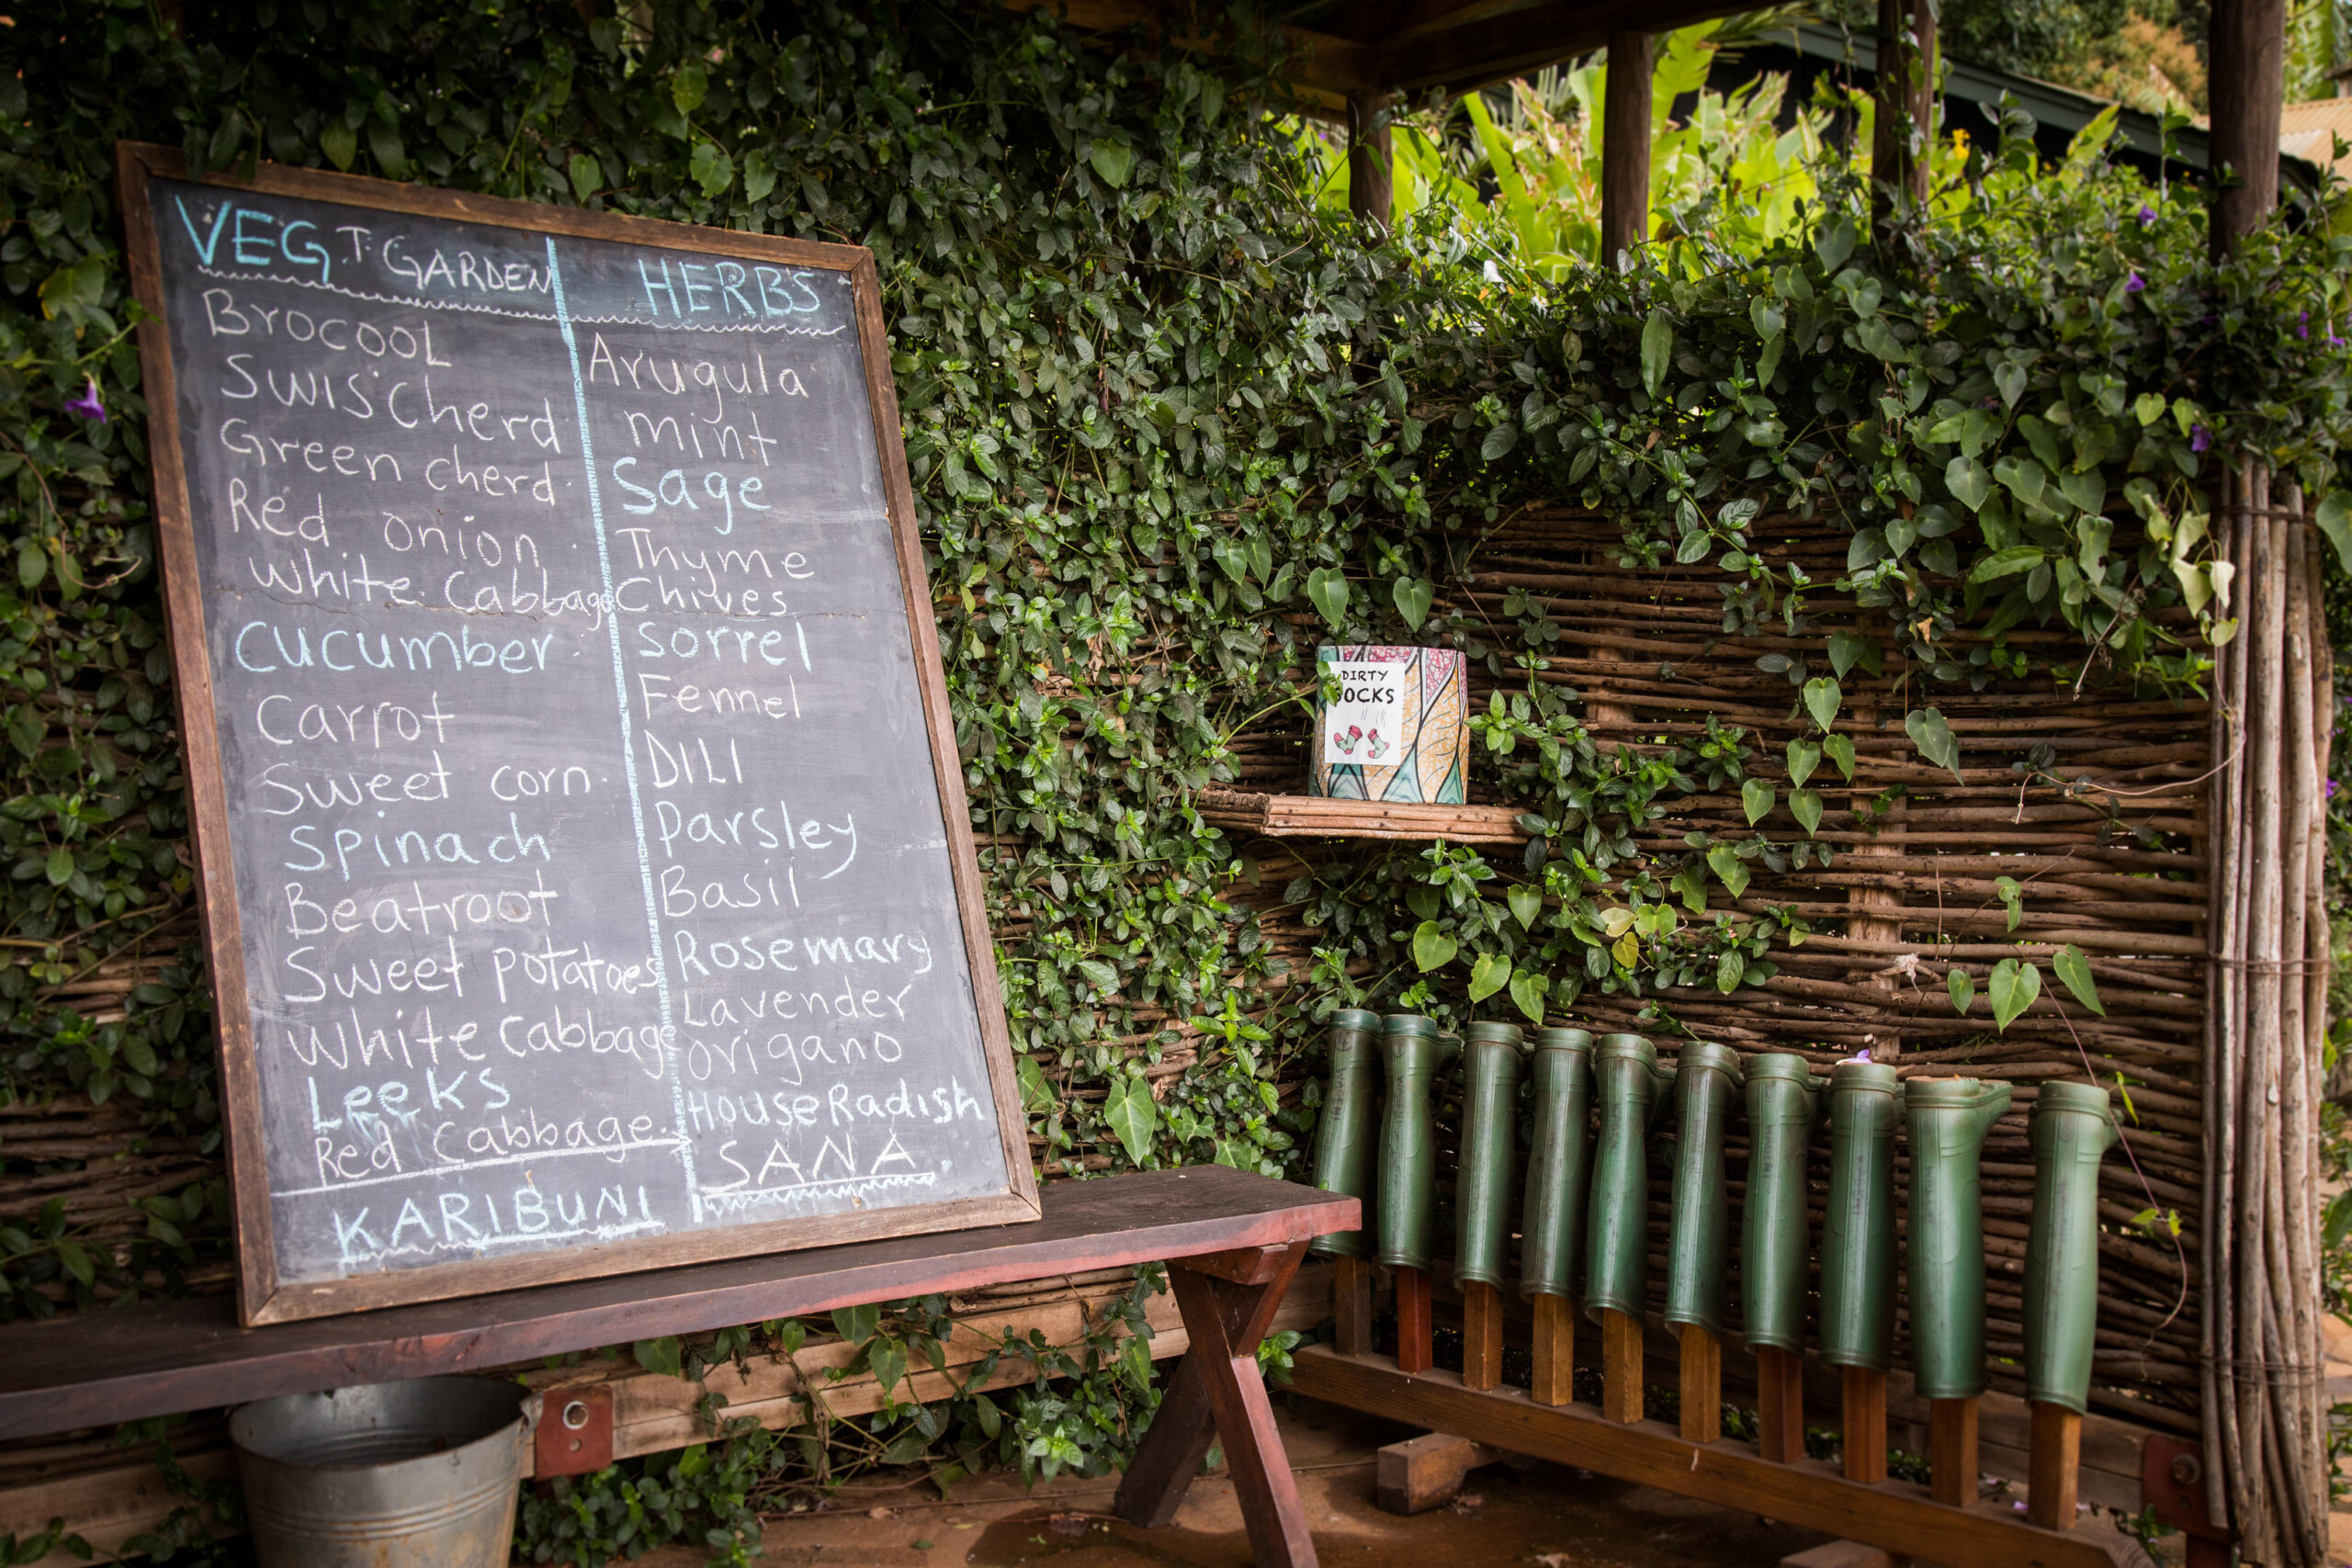 VEG.T GARDEN
Brocool
Swis Cherd
Green cherd
Red onion
White Cabbage
Cucumber
Carrot
Sweet corn
Spinach
Beatroot
Sweet potatoes
White Cabbage
Leeks
Red Cabbage
KARIBUNI
HERBS
Arugula
mint
Sage
Thyme
Chives
Sorrel
Fennel
DILL
Parsley
Basil
Rosemary
Lavender
origano
House Radish
SANA
DIRTY
SOCKS